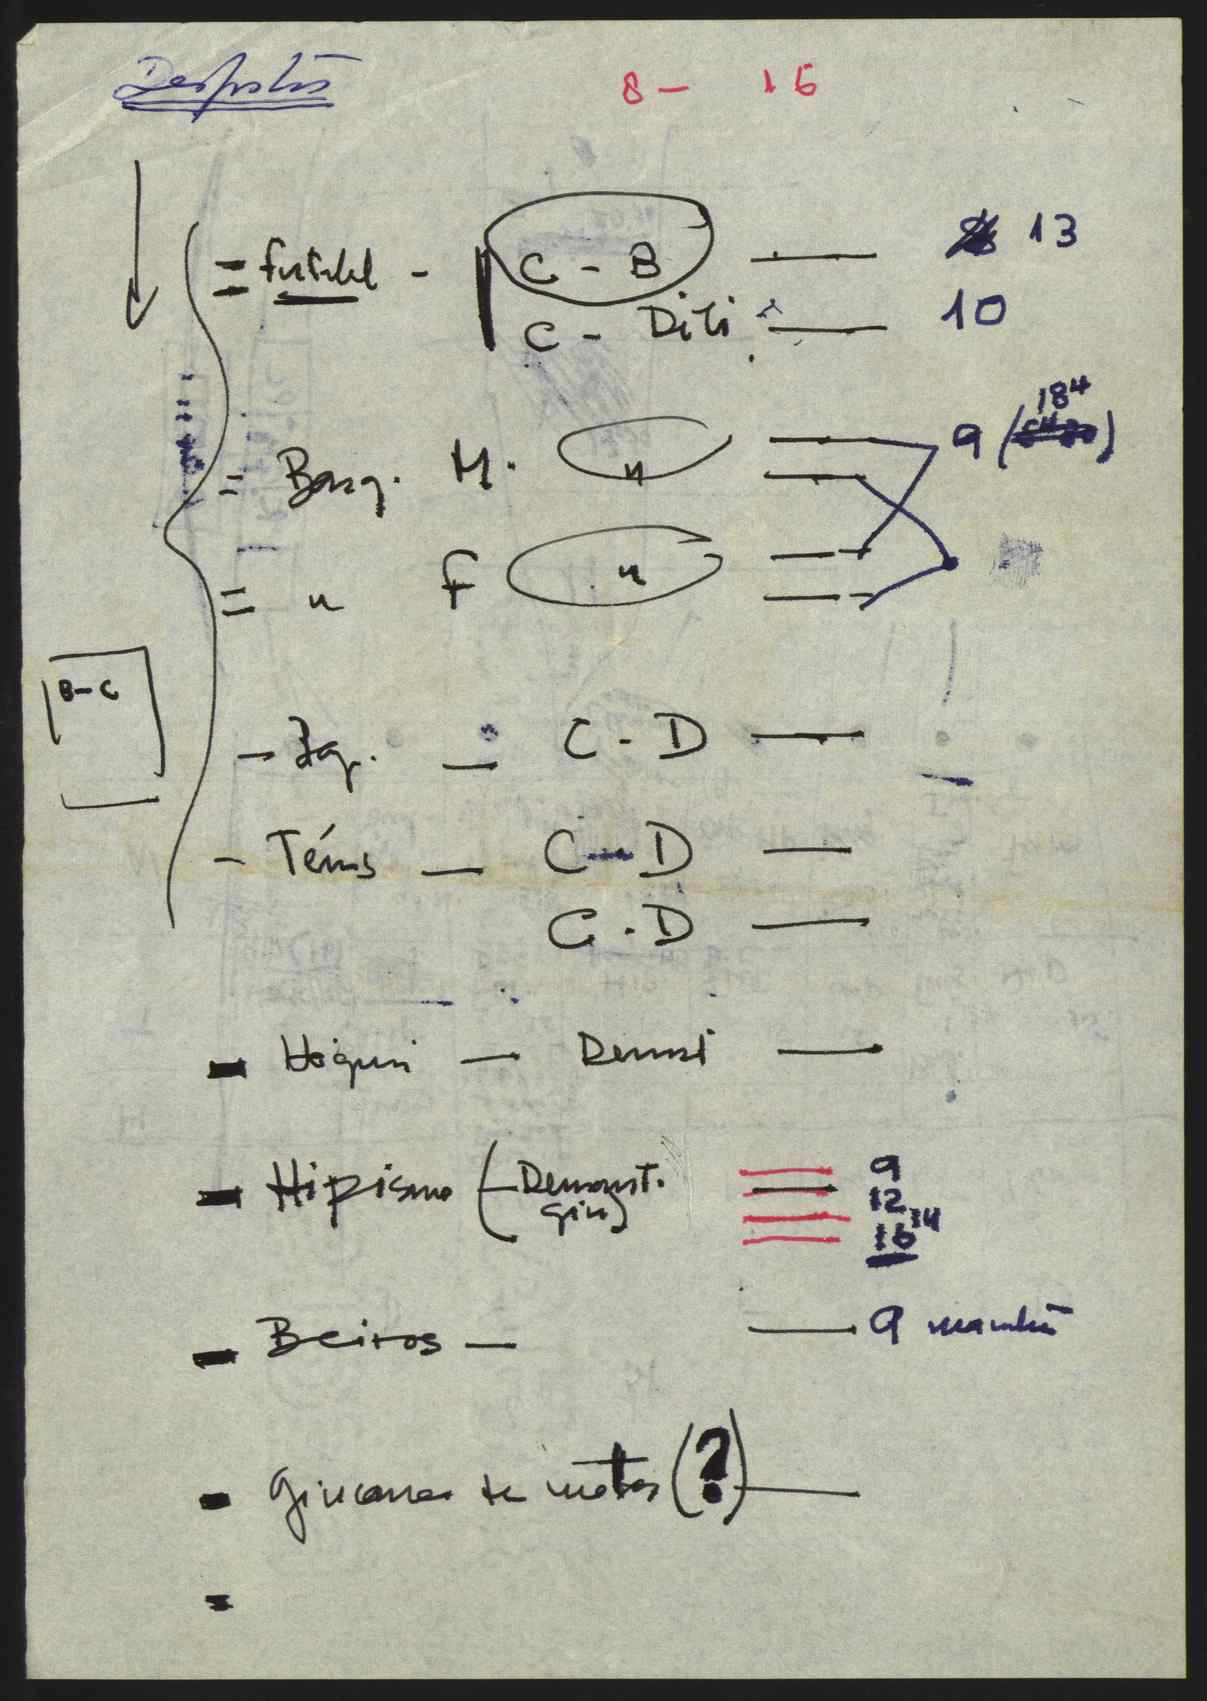 Desportos
8 - 16
= futebol - C - B — 13
C - Diti — 10
= Basq. M. " — 9 (184)
= " F "
B - C
- C - D —
- Ténis — C - D —
C . D —
- Hóquei — Demost —
- Hipismo (Demonst. gin) — 9
12
14
16
- Beiros — — 9 manhã
- gincana de motos (?) —
-